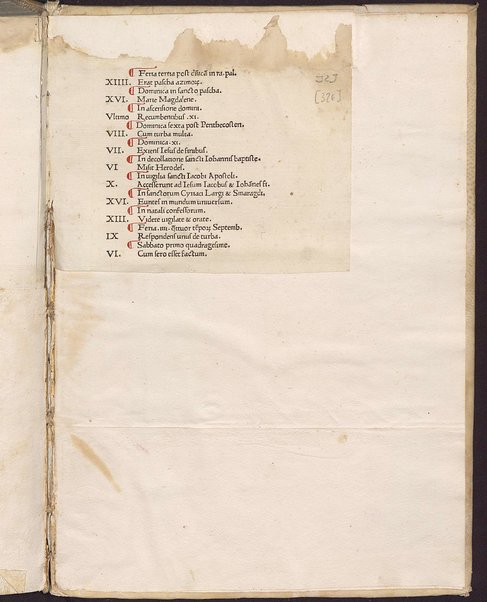 ¶ Feria tertia post dn̄icā in ra. pal.
XIIII. Erat pascha azimoꝝ.
¶ Dominica in sancto pascha.
XVI. Marie Magdalene.
¶ In ascensione domini.
Vltimo Recumbentibus .xi.
¶ Dominica sexta post Penthecosten.
VIII. Cum turba multa.
¶ Dominica .xi.
VII. Exiens Iesus de finibus.
¶ In decollatione sancti Iohannis baptiste.
VI Misit Herodes.
¶ In uigilia sancti Iacobi Apostoli.
X. Accesserunt ad Iesum Iacobus & Iohānes fi.
¶ In sanctorum Cyriaci Largi & Smaragdi.
XVI. Euntes in mundum uniuersum.
¶ In natali confessorum.
XIII. Videte uigilate & orate.
¶ Feria .iiii. q̄tuor tēpoꝝ Septemb.
IX Respondens unus de turba.
¶ Sabbato primo quadragesime.
VI. Cum sero esset factum.
[326]